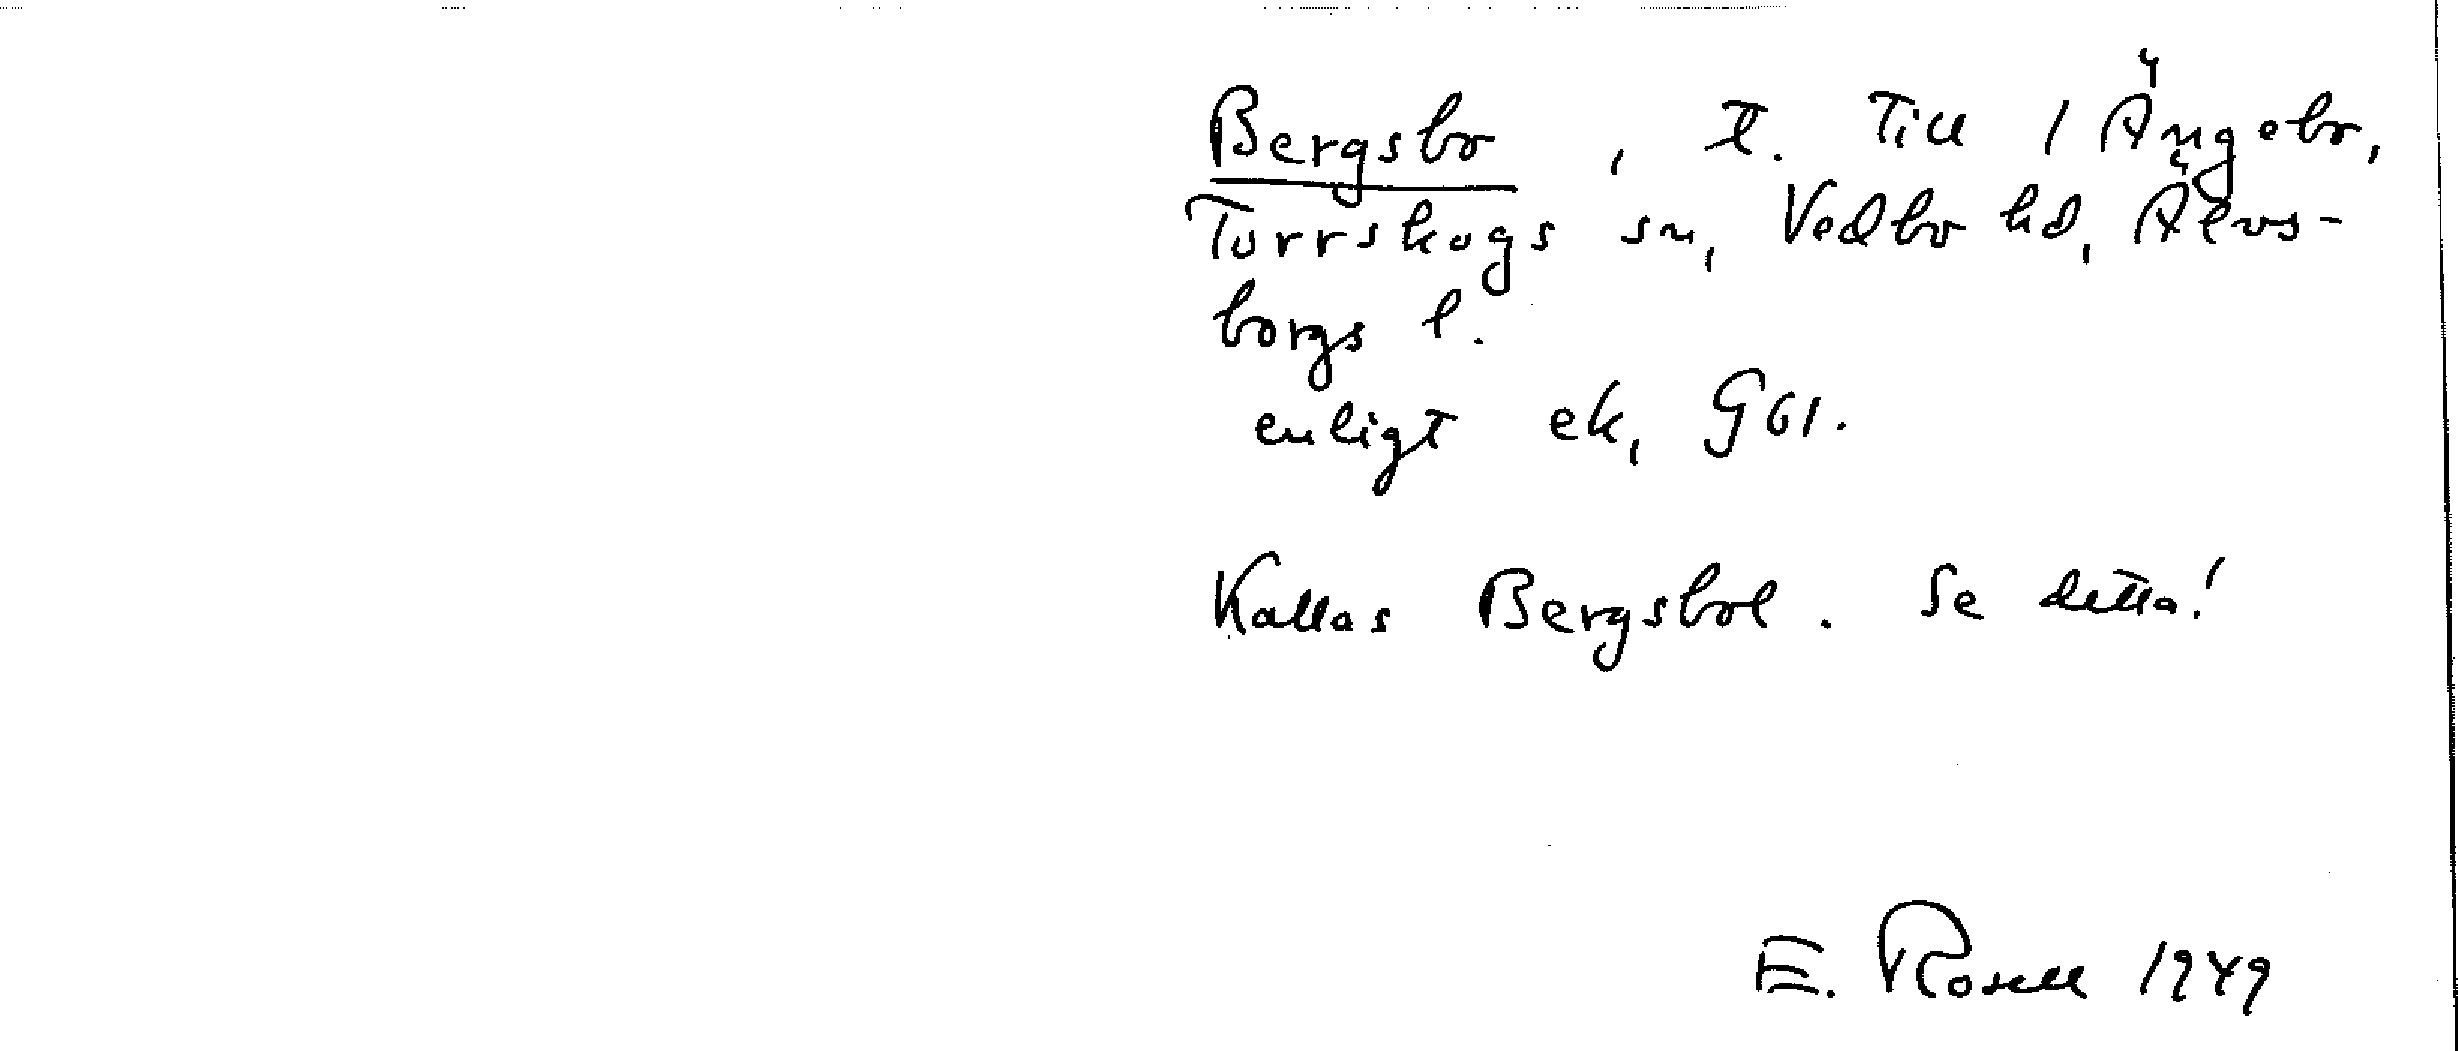 Bergsbo, t. till 1 Ängebo,
Torrskogs sn, Vedbo hd, Älvs-
borgs l.
enligt ek, G61.
Kallas Bergsbol. Se detta!
E. Rosell 1949